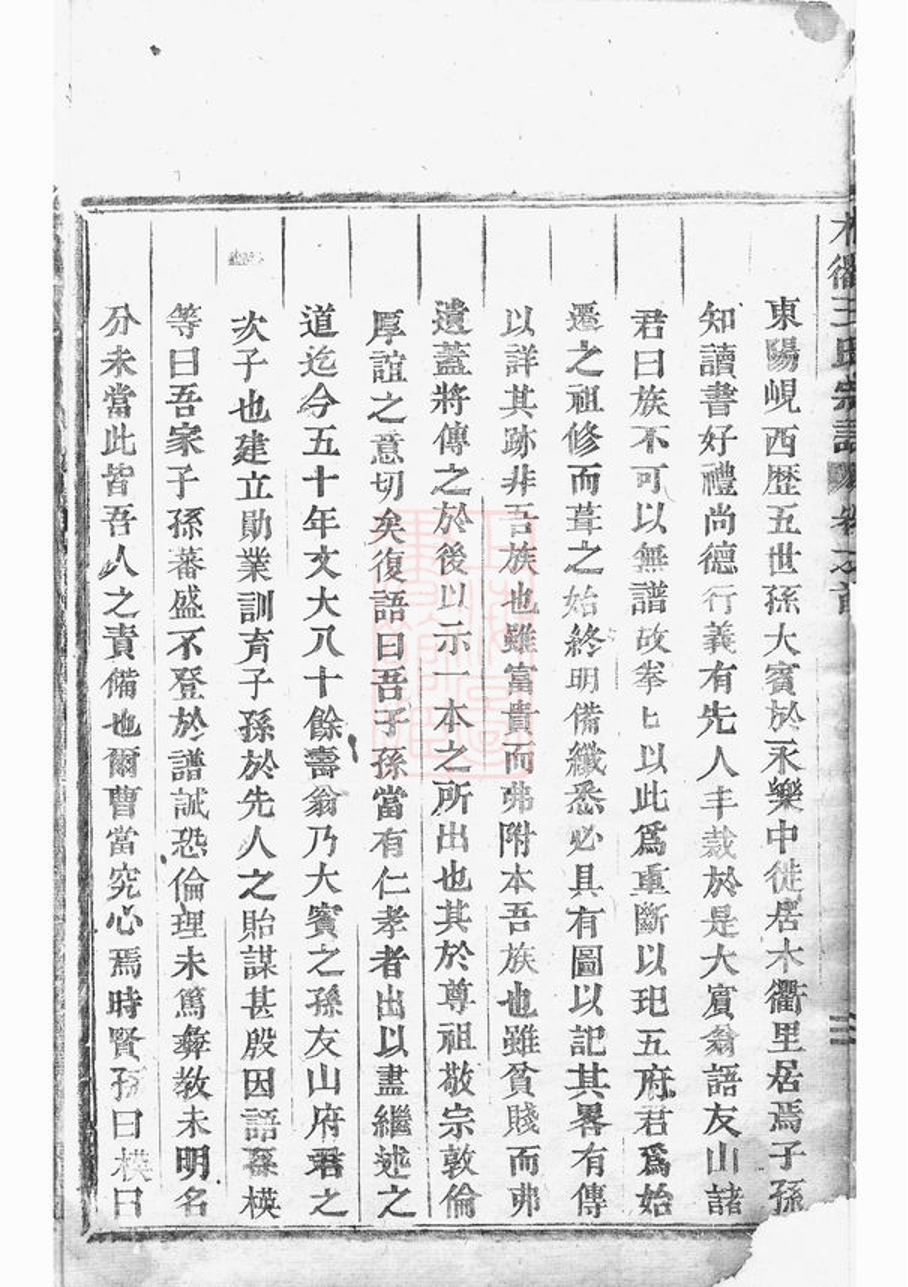 木衢王氏宗譜 卷之首 三
東陽峴西歴五世孫大賓於永樂中徙居木衢里居焉子孫
知讀書好禮尚德行義有先人丰裁於是大賔翁語友山諸
君曰族不可以無譜故拳〻以此爲重斷以玘五府君爲始
遷之祖修而葺之始終明備纖悉必具有圖以記其畧有傳
以詳其跡非吾族也雖富貴而弗附本吾族也雖貧賤而弗
遺蓋將傳之於後以示一本之所出也其於尊祖敬宗敦倫
厚誼之意切矣復語曰吾子孫當有仁孝者出以盡繼述之
道迄今五十年文大八十餘壽翁乃大賓之孫友山府君之
次子也建立勛業訓育子孫於先人之貽謀甚殷因語孫模
等曰吾家子孫蕃盛不登於譜誠恐倫理未篤彝教未明名
分未當此皆吾人之責備也爾曹當究心焉時賢孫曰模曰